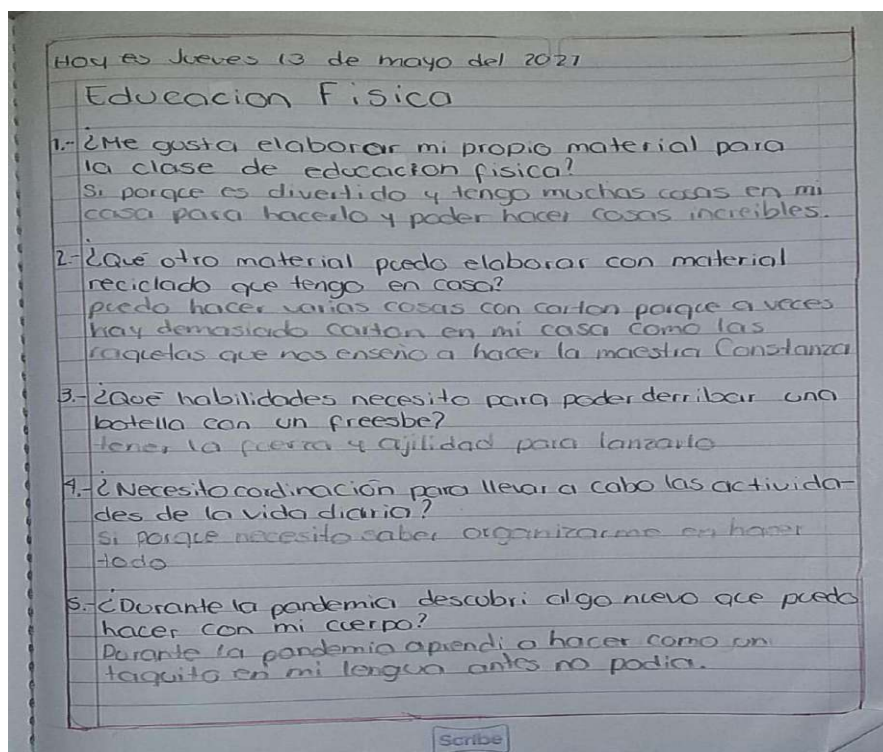 Hoy es Jueves 13 de mayo del 2021
Educacion Fisica
1.- ¿Me gusta elaborar mi propio material para
la clase de educacion fisica?
Si porqce es divertido y tengo muchas cosas en mi
casa para hacerlo y poder hacer cosas increibles.
2.- ¿Qué otro material pcedo elaborar con material
reciclado que tengo en casa?
pcedo hacer varias cosas con carton porqce a veces
hay demasiado carton en mi casa como las
raquetas que nos enseño a hacer la maestra Constanza
3.- ¿Qué habilidades necesito para poder derribar una
botella con un freesbe?
tener la fcerza y ajilidad para lanzarlo
4.- ¿Necesito cordinación para llevar a cabo las activida-
des de la vida diaria?
Si porqce necesito saber organizarme en hacer
todo
5.- ¿Durante la pandemia descubri algo nuevo qce puedo
hacer con mi cuerpo?
Durante la pandemia aprendi a hacer como un
taquito en mi lengua antes no podia.
Scribe